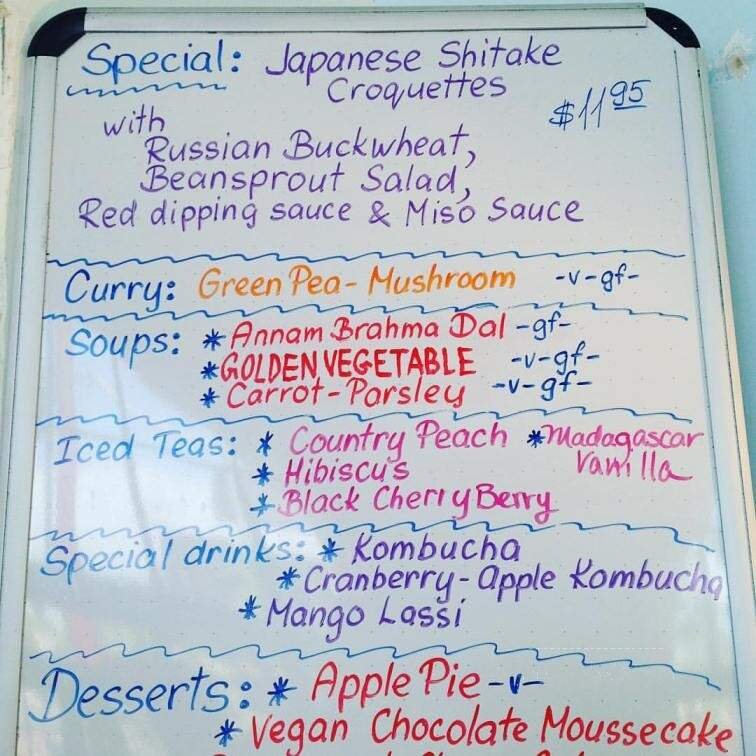 Special: Japanese Shitake
Croquettes
$11.95
with
Russian Buckwheat,
Beansprout Salad,
Red dipping sauce & Miso Sauce
Curry: Green Pea - Mushroom -v-gf-
Soups: * Annam Brahma Dal -gf-
* GOLDEN VEGETABLE -v-gf-
* Carrot-Parsley -v-gf-
Iced Teas: * Country Peach * Madagascar
Vanilla
* Hibiscus
* Black Cherry Berry
Special drinks: * Kombucha
* Cranberry-apple Kombucha
* Mango Lassi
Desserts: * Apple Pie -v-
* Vegan Chocolate Moussecake